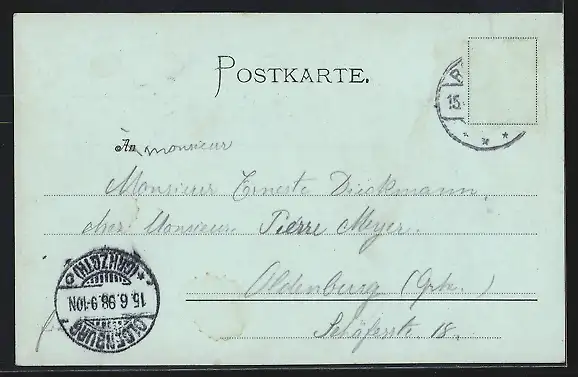 POSTKARTE.
15.
à monsieur
An
Monsieur Erneste Dieckmann,
chez Monsieur Pierre Meyer
Oldenburg (Grbz.)
Schäferstr. 18.
OLDENBURG
15.6.98.9-10N.
(GRHZGTH)